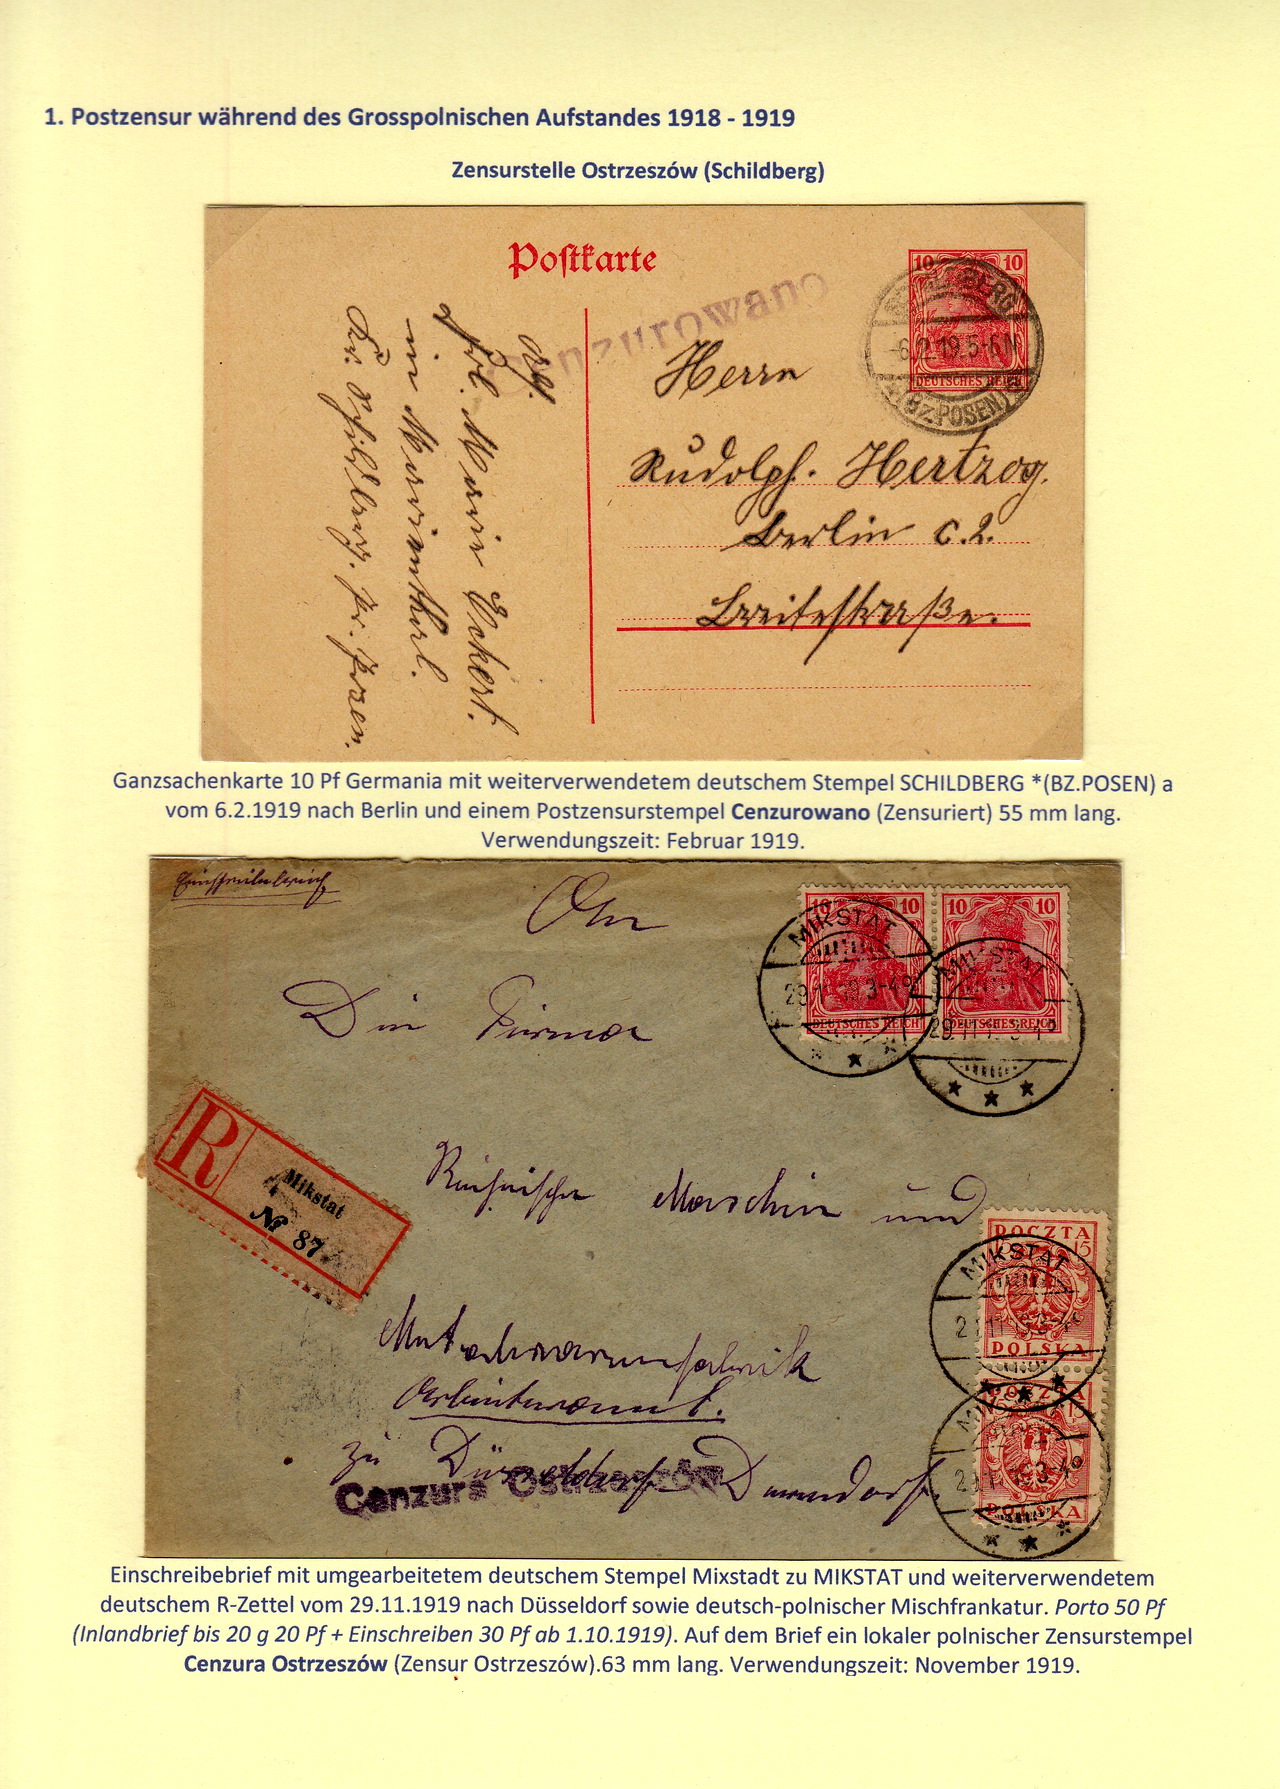 1. Postzensur während des Grosspolnischen Aufstandes 1918 - 1919
Zensurstelle Ostrzeszów (Schildberg)
Postkarte
10 10
DEUTSCHES REICH
SCHILDBERG
-6.2.19.5-6N
*(BZ.POSEN) a
Cenzurowano
Abs.
Frl. Marie Eckert.
in Marienthal.
Kr. Schildberg. Pr. Posen.
Herrn
Rudolph. Hertzog.
Berlin C.2.
Breitestraße.
Ganzsachenkarte 10 Pf Germania mit weiterverwendetem deutschem Stempel SCHILDBERG *(BZ.POSEN) a
vom 6.2.1919 nach Berlin und einem Postzensurstempel Cenzurowano (Zensuriert) 55 mm lang.
Verwendungszeit: Februar 1919.
Einschreibebrief
An
10 10 10 10
MIKSTAT
MIKSTAT
DEUTSCHES REICH
DEUTSCHES REICH
Die Firma
R
Mikstat
№ 87
Rheinische Maschin und
Metallwarenfabrik
zu Düsseldorf Derendorf.
Cenzura Ostrzeszów
POCZTA
15
MIKSTAT
POLSKA
POCZTA
15
POLSKA
Einschreibebrief mit umgearbeitetem deutschem Stempel Mixstadt zu MIKSTAT und weiterverwendetem
deutschem R-Zettel vom 29.11.1919 nach Düsseldorf sowie deutsch-polnischer Mischfrankatur. Porto 50 Pf
(Inlandbrief bis 20 g 20 Pf + Einschreiben 30 Pf ab 1.10.1919). Auf dem Brief ein lokaler polnischer Zensurstempel
Cenzura Ostrzeszów (Zensur Ostrzeszów).63 mm lang. Verwendungszeit: November 1919.